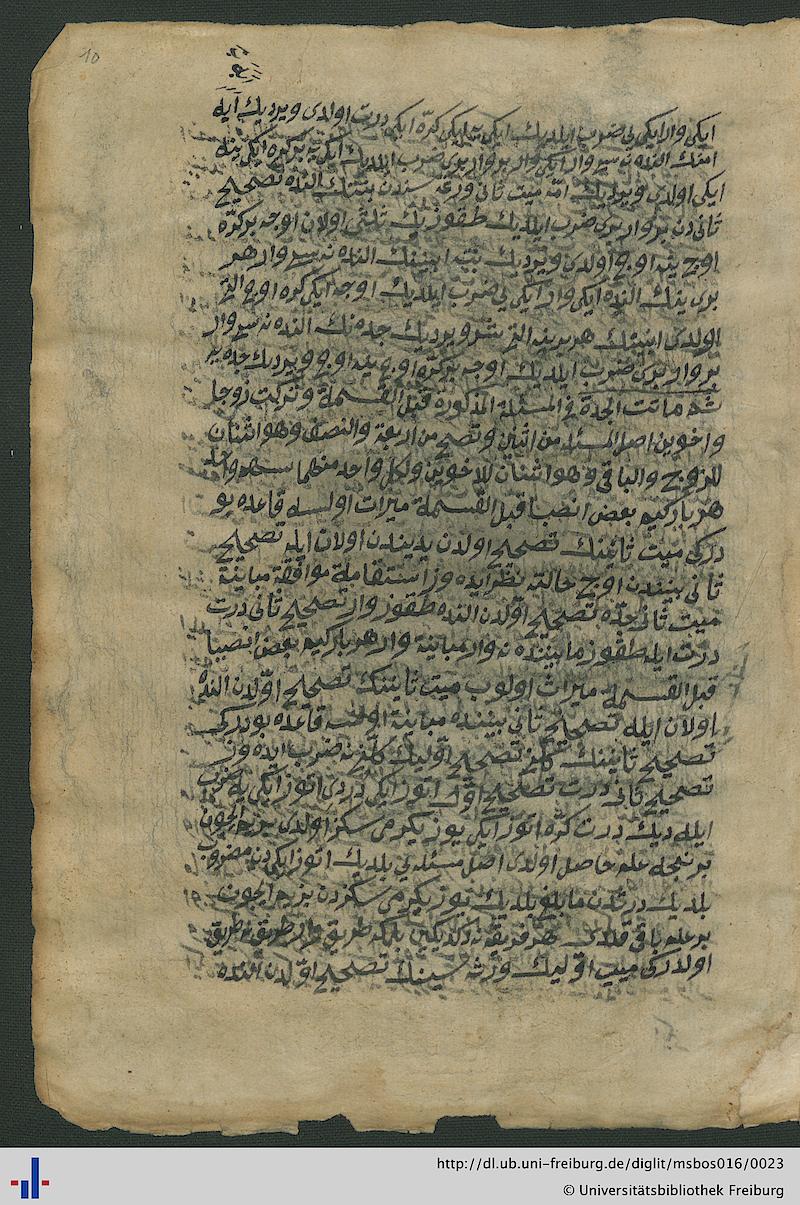 10
ایکی وار ایکی یی ضرب ایلدیك ایکی یه ایکی کره ایکی درت اولدی ویردیك
امنك النده نه سی وار ایکی وار بر وار بری ضرب ایلدیك ایکی یه بر کره ایکی ینه
ایکی اولدی ویردیك امه میت ثانی ورثه سندن بنتك النده تصحیح
ثانی دن بر وار بری ضرب ایلدیك طقوزیك ثلثی اولان اوجه بر کره
اوچ ینه اوچ اولدی ویردیك بنته ابنینك النده نه سی وار هر
برینك النده ایکی وار ایکی یی ضرب ایلدیك اوجه ایکی کره اوچ التی
اولدی ابنینك هر برینه التی شر ویردیك جده نك النده نه سی وار
بر وار بری ضرب ایلدیك اوجه بر کره اوچ ینه اوچ ویردیك جده یه
ثم ماتت الجدة فی المسئلة المذکورة قبل القسمة وترکت زوجا
واخوین اصل المسئله من اثنین وتصح من اربعة والنصف وهو اثنان
للزوج والباقی وهو اثنان للاخوین ولکل واحد منهما سهم واحد
هر بارکیم بعض انصبا قبل القسمة میراث اولسه قاعده بو
درکی میت ثانینك تصحیح اولدن یدیندن اولان ایله تصحیح
ثانی بیننده اوچ حالته نظر ایده وز استقامة موافقة مباینة
میت ثانی جده تصحیح اولدن النده طقوز وار تصحیح ثانی درت
درت ایله طقوز مابیننده نه وار مباینة وار هر بارکیم بعض انصبا
قبل القسمة میراث اولوب میت ثانینك تصحیح اولدن النده
اولان ایله تصحیح ثانی بیننده مباینة اولسه قاعده بو درکی
تصحیح ثانینك کلنی تصحیح اولیك کلنه ضرب ایده وز
تصحیح ثانی درت تصحیح اول اتوز ایکی دردی اتوز ایکی یه ضرب
ایله دیك درت کره اتوز ایکی یوز یکرمی سکز اولدی بزم ایچون
بر نیجه علم حاصل اولدی اصل مسئله یی بلدیك اتوز ایکی دن مضروب
بلدیك درتدن مابلغ بلدیك یوز یکرمی سکزدن بزم ایچون
بر علم باقی قلدی هر فریقه نه دکدیکین بلمکه طریق وار طریق نه طریق
اولدرکی میت اولیك ورثه سینك تصحیح اولدن النده
http://dl.ub.uni-freiburg.de/diglit/msbos016/0023
© Universitätsbibliothek Freiburg